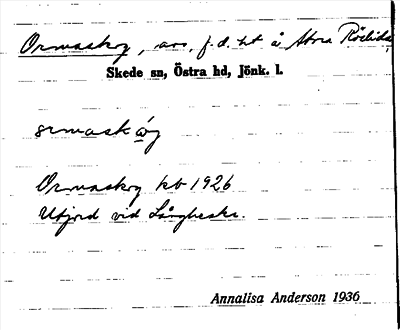 Ormaskog, avs, f.d. ht å Stora Röslida,
Skede sn, Östra hd, Jönk. l.
ormaskóg
Ormaskog kb 1926
Utjord vid
Annalisa Anderson 1936